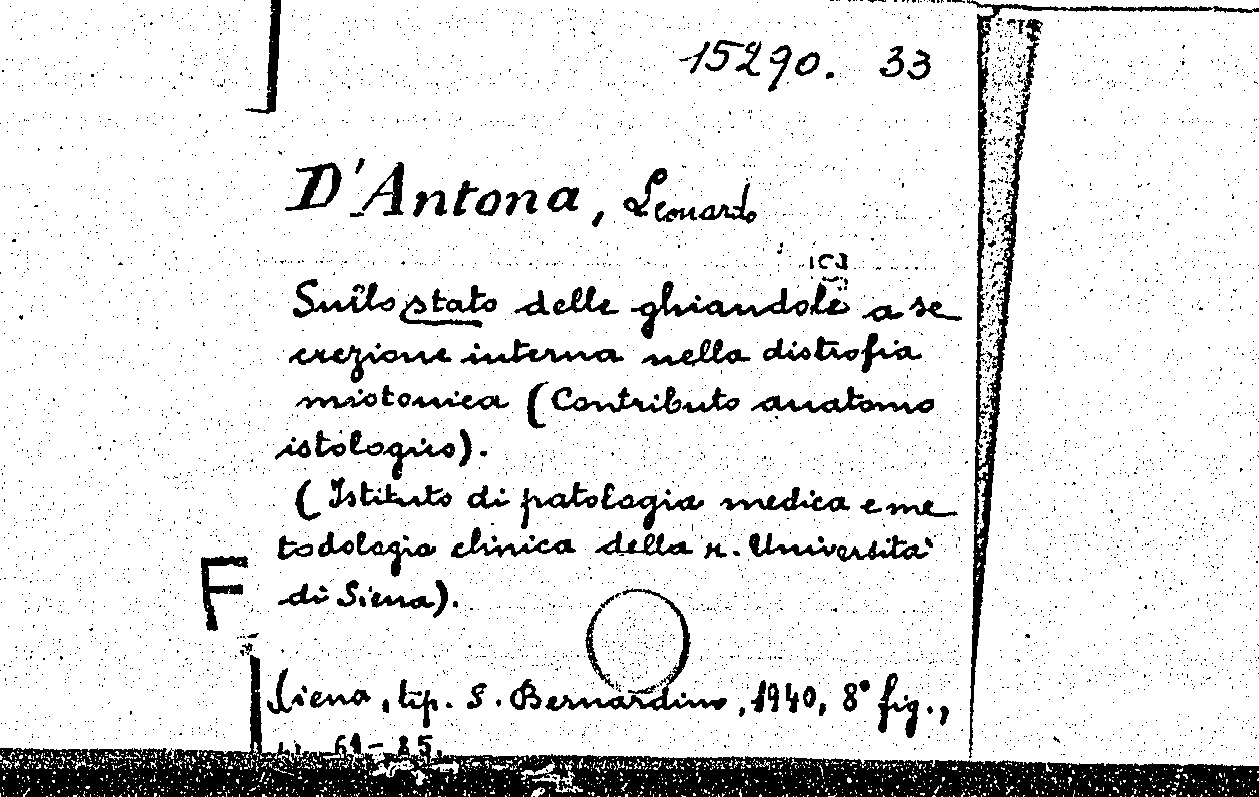 15290. 33
D'Antona, Leonardo
Sullo stato delle ghiandole a se
crezione interna nella distrofia
miotonica (Contributo anatomo
istologico).
(Istituto di patologia medica e me
todologia clinica della r. Università
di Siena).
F
Siena, tip. S. Bernardino, 1940, 8° fig.,
61-85.